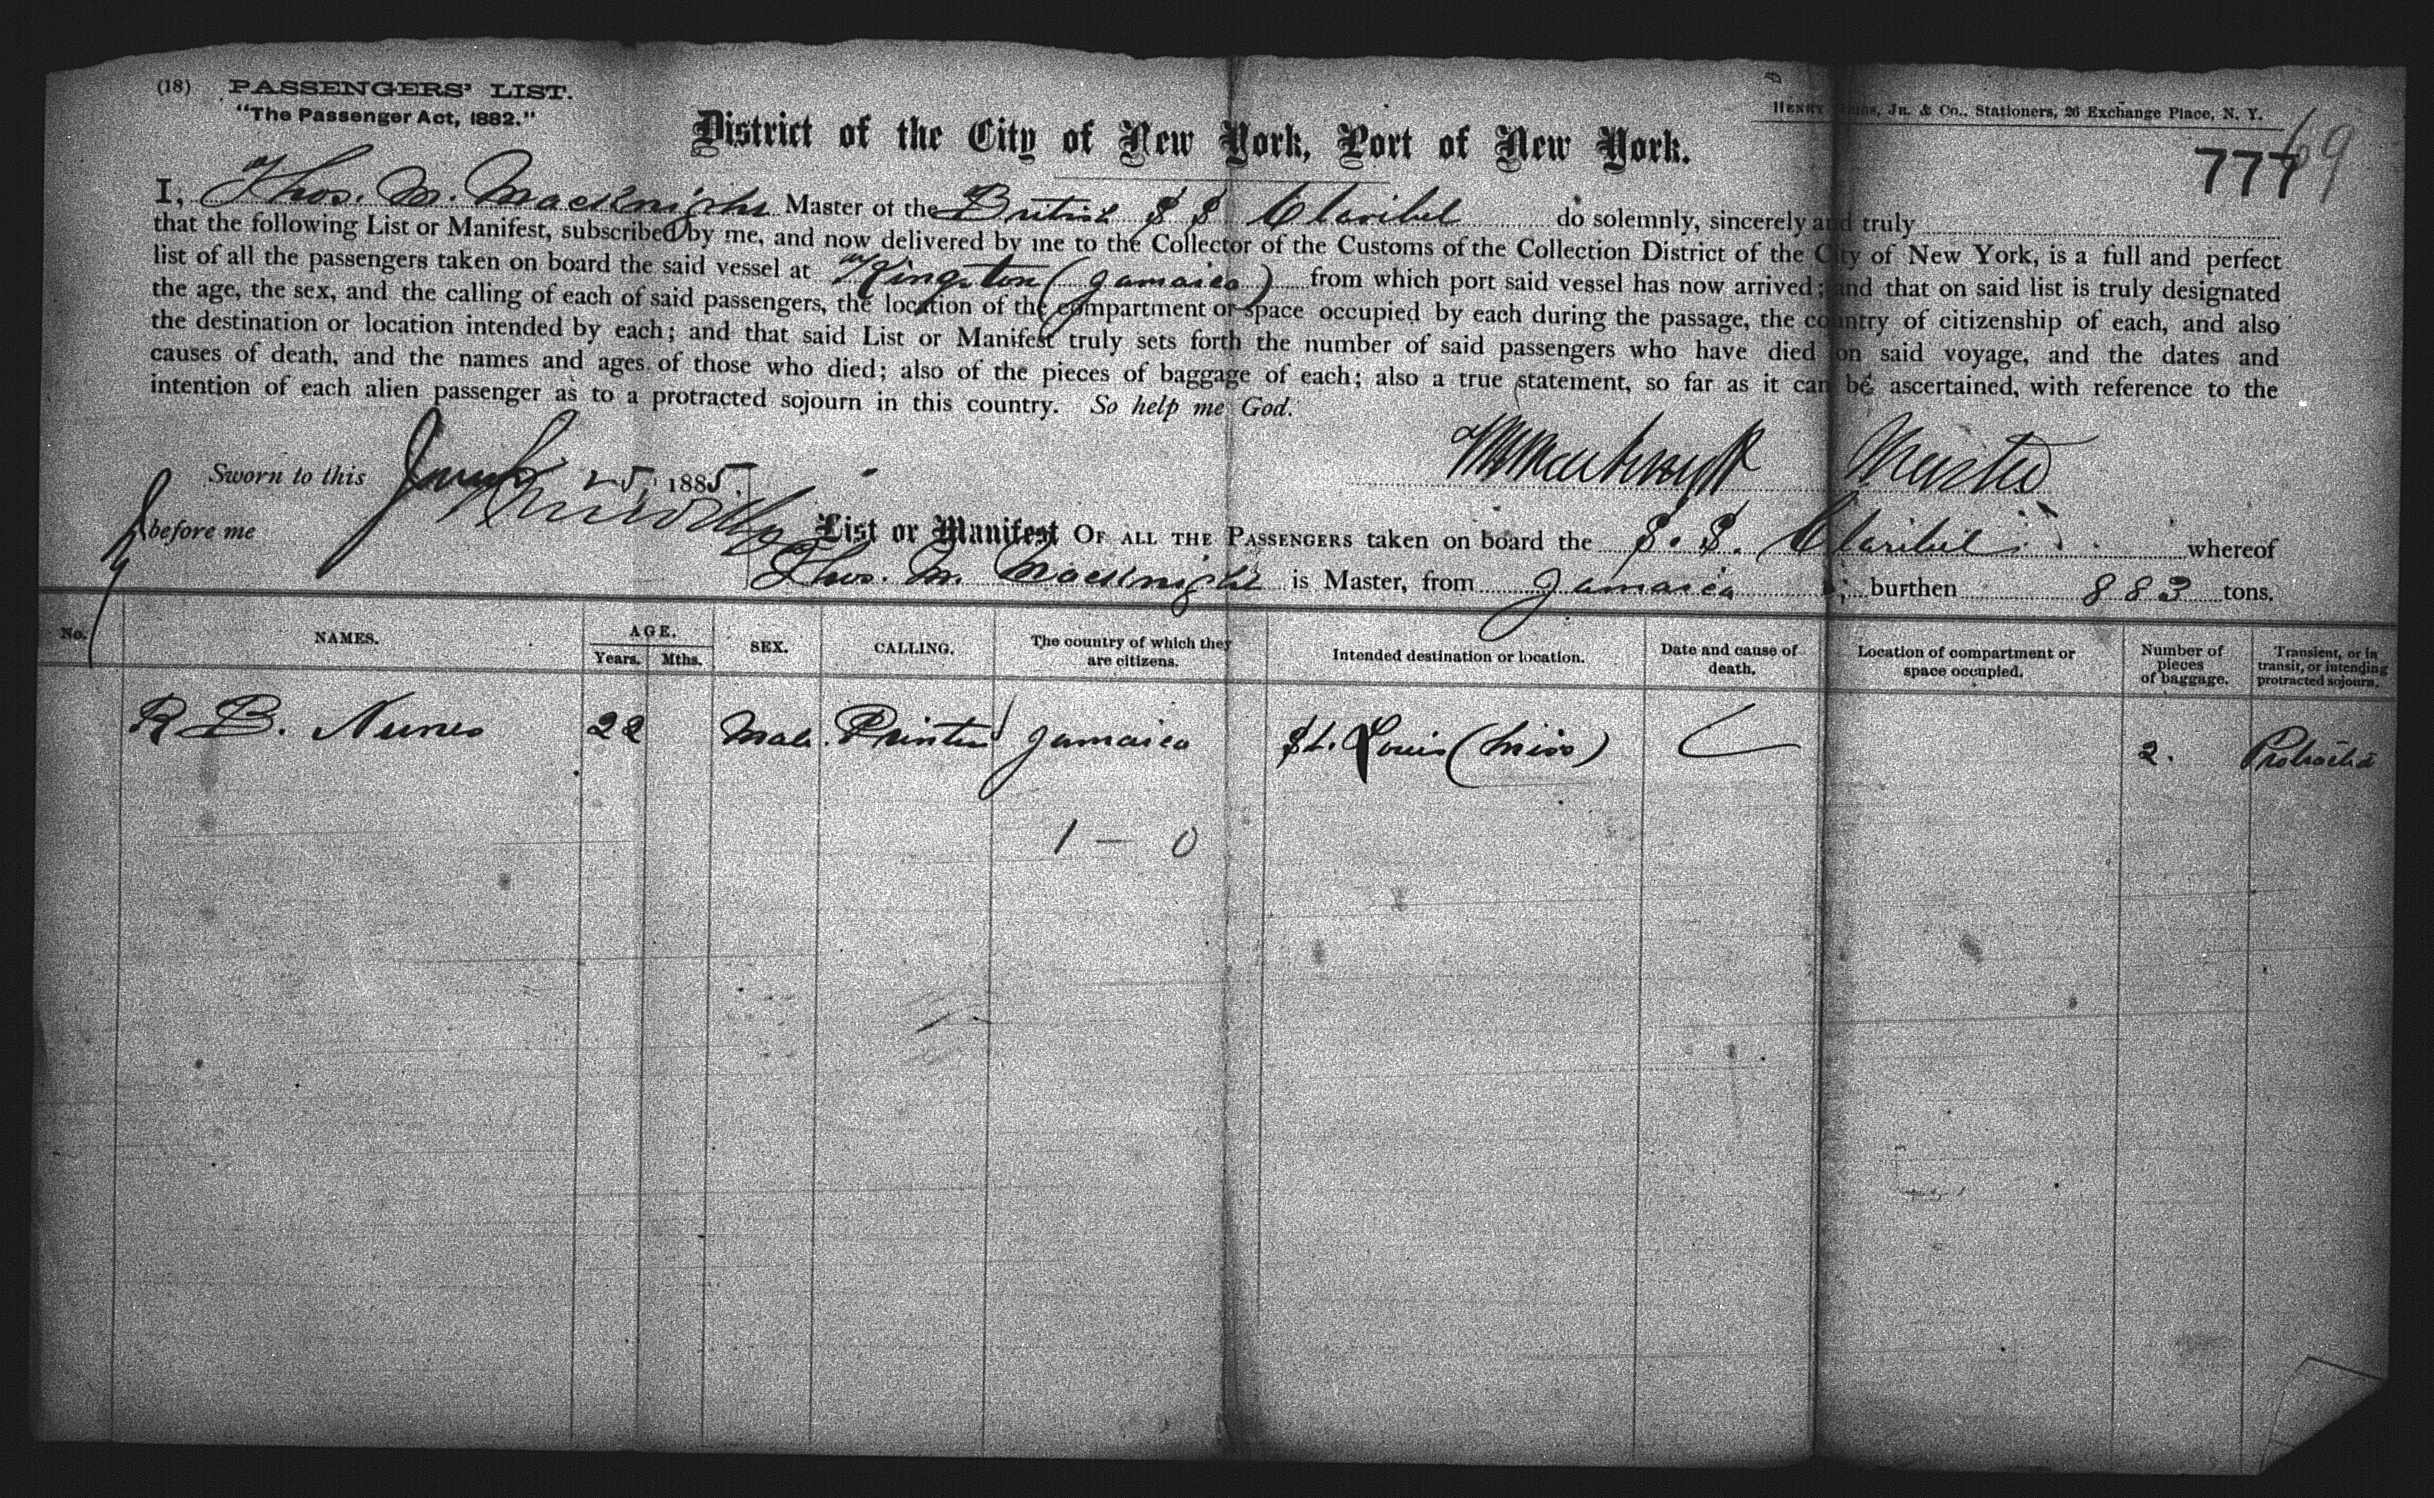 (18) PASSENGERS' LIST.
"The Passenger Act, 1882."
HENRY Jr. & Co., Stationers, 26 Exchange Place, N. Y.
District of the City of New York, Port of New York.
69
777
I, Thos. M. Macknight Master of the British S S Claribel do solemnly, sincerely and truly
that the following List or Manifest, subscribed by me, and now delivered by me to the Collector of the Customs of the Collection District of the City of New York, is a full and perfect
list of all the passengers taken on board the said vessel at Kingston (Jamaica) from which port said vessel has now arrived; and that on said list is truly designated
the age, the sex, and the calling of each of said passengers, the location of the compartment or space occupied by each during the passage, the country of citizenship of each, and also
the destination or location intended by each; and that said List or Manifest truly sets forth the number of said passengers who have died on said voyage, and the dates and
causes of death, and the names and ages of those who died; also of the pieces of baggage of each; also a true statement, so far as it can be ascertained, with reference to the
intention of each alien passenger as to a protracted sojourn in this country. So help me God.
Sworn to this 25, 1885.
Master
before me
List or Manifest OF ALL THE PASSENGERS taken on board the S. S. Claribel whereof
Thos. M. Macknight is Master, from Jamaica ; burthen 883 tons.
No. NAMES. AGE. Years. Mths. SEX. CALLING. The country of which they are citizens. Intended destination or location. Date and cause of death. Location of compartment or space occupied. Number of pieces of baggage. Transient, or in transit, or intending protracted sojourn.
R B. Nunes 22 Male. Printer Jamaica St. Louis (Miss) 2. Protracted
1 — 0